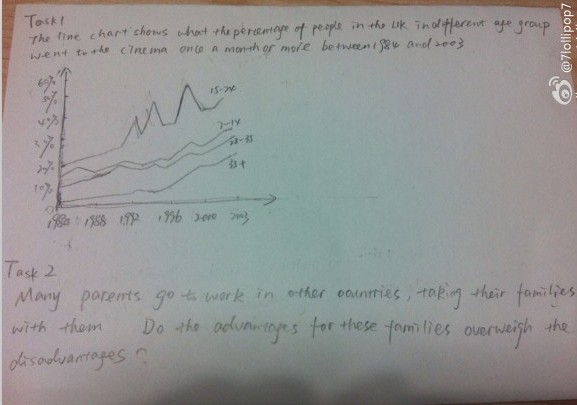 Task 1
The line chart shows what the percentage of people in the UK in different age group
went to the cinema once a month or more between 1984 and 2003
60%
50%
40%
30%
20%
10%
0
15-24
7-14
25-35
35+
1984 1988 1992 1996 2000 2003
Task 2
Many parents go to work in other countries, taking their families
with them Do the advantages for these families overweigh the
disadvantages?
@7lollipop7